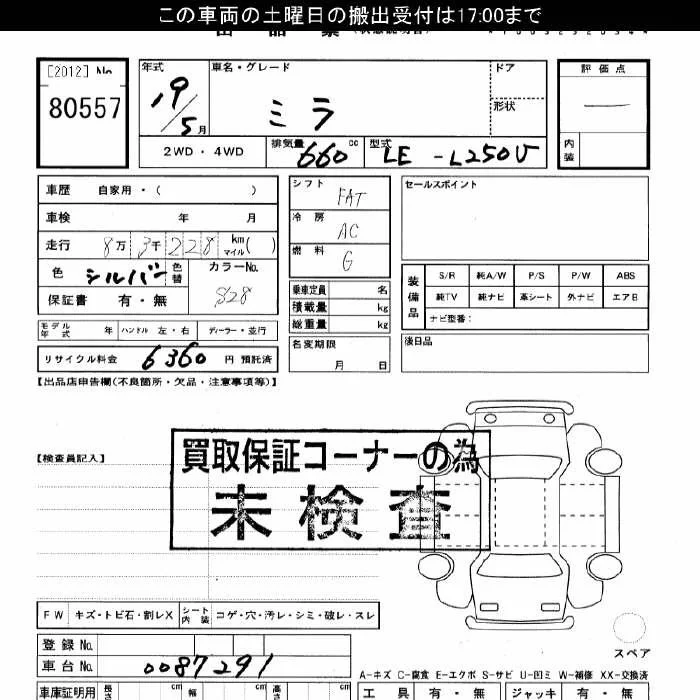 この車両の土曜日の搬出受付は17:00まで
[2012] No
80557
年式 19/5月
車名・グレード ミラ
ドア
形状
評価点 —
内装
2WD・4WD
排気量 660 cc
型式 LE-L250V
車歴 自家用・( )
車検 年 月
走行 8万3千228 km マイル( )
色 シルバー 色替 カラーNo. S28
保証書 有・無
シフト FAT
冷房 AC
燃料 G
乗車定員 名
積載量 kg
総重量 kg
セールスポイント
装備品
S/R 純A/W P/S P/W ABS
純TV 純ナビ 革シート 外ナビ エアB
ナビ型番:
モデル年式 年 ハンドル 左・右 ディーラー・並行
リサイクル料金 6360 円 預託済
名変期限 月 日
後日品
【出品店申告欄(不良箇所・欠品・注意事項等)】
【検査員記入】
買取保証コーナーの為
未検査
FW キズ・トビ石・割レX シート内装 コゲ・穴・汚レ・シミ・破レ・スレ
登録No.
車台No. 0087291
スペア
A-キズ C-腐食 E-エクボ S-サビ U-凹ミ W-補修 XX-交換済
車庫証明用 長さ cm 幅 cm 高さ cm
工具 有・無 ジャッキ 有・無